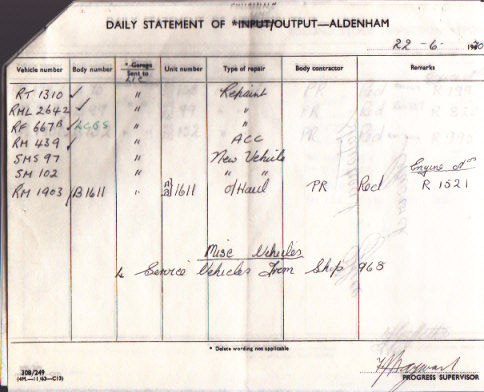 DAILY STATEMENT OF *INPUT/OUTPUT—ALDENHAM
22-6-
Vehicle number Body number *Garage Sent to Unit number Type of repair Body contractor Remarks
RT 1310 ✓ " Repaint PR Red
RML 2642 ✓ " "
RF 667B ✓ LCBS " "
RM 439 ✓ " ACC
SMS 97 " New Vehicle
SM 102 " " "
Engine No
RM 1903 B1611 " 1611 O/Haul PR Red R 1521
Misc Vehicles
4 Service Vehicles From Shop 968
* Delete wording not applicable
308/249
(4M.—11/63—C13)
PROGRESS SUPERVISOR